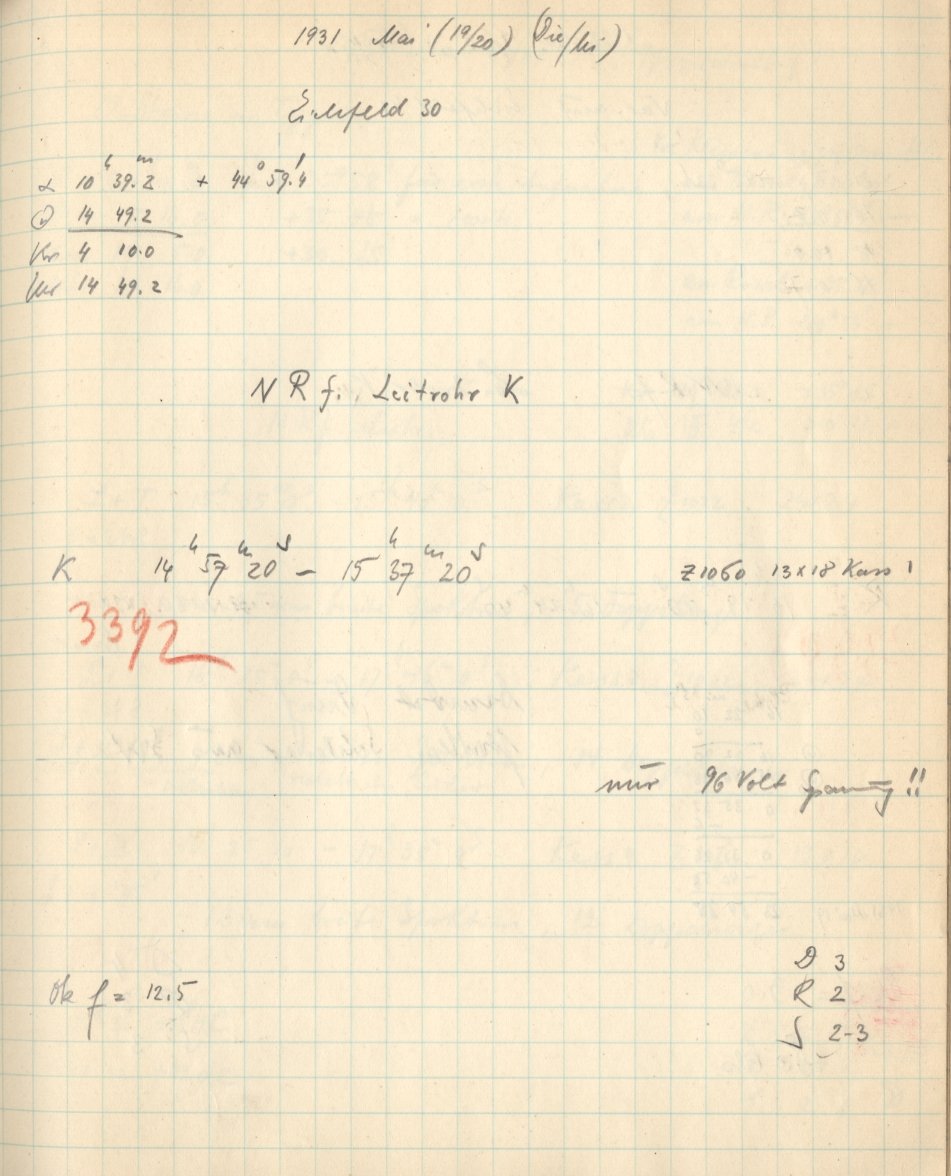 1931 Mai (19/20) (Die/Mi)
Eichfeld 30
α 10ʰ 39.2ᵐ + 44° 59.4'
14 49.2
4 10.0
Uhr 14 49.2
N R f. Leitrohr K
K 14ʰ 57ᵐ 20ˢ – 15ʰ 37ᵐ 20ˢ Z1060 13x18 Kass 1
3392
nur 96 Volt Spannung!!
D 3
Ok f = 12.5 R 2
S 2-3